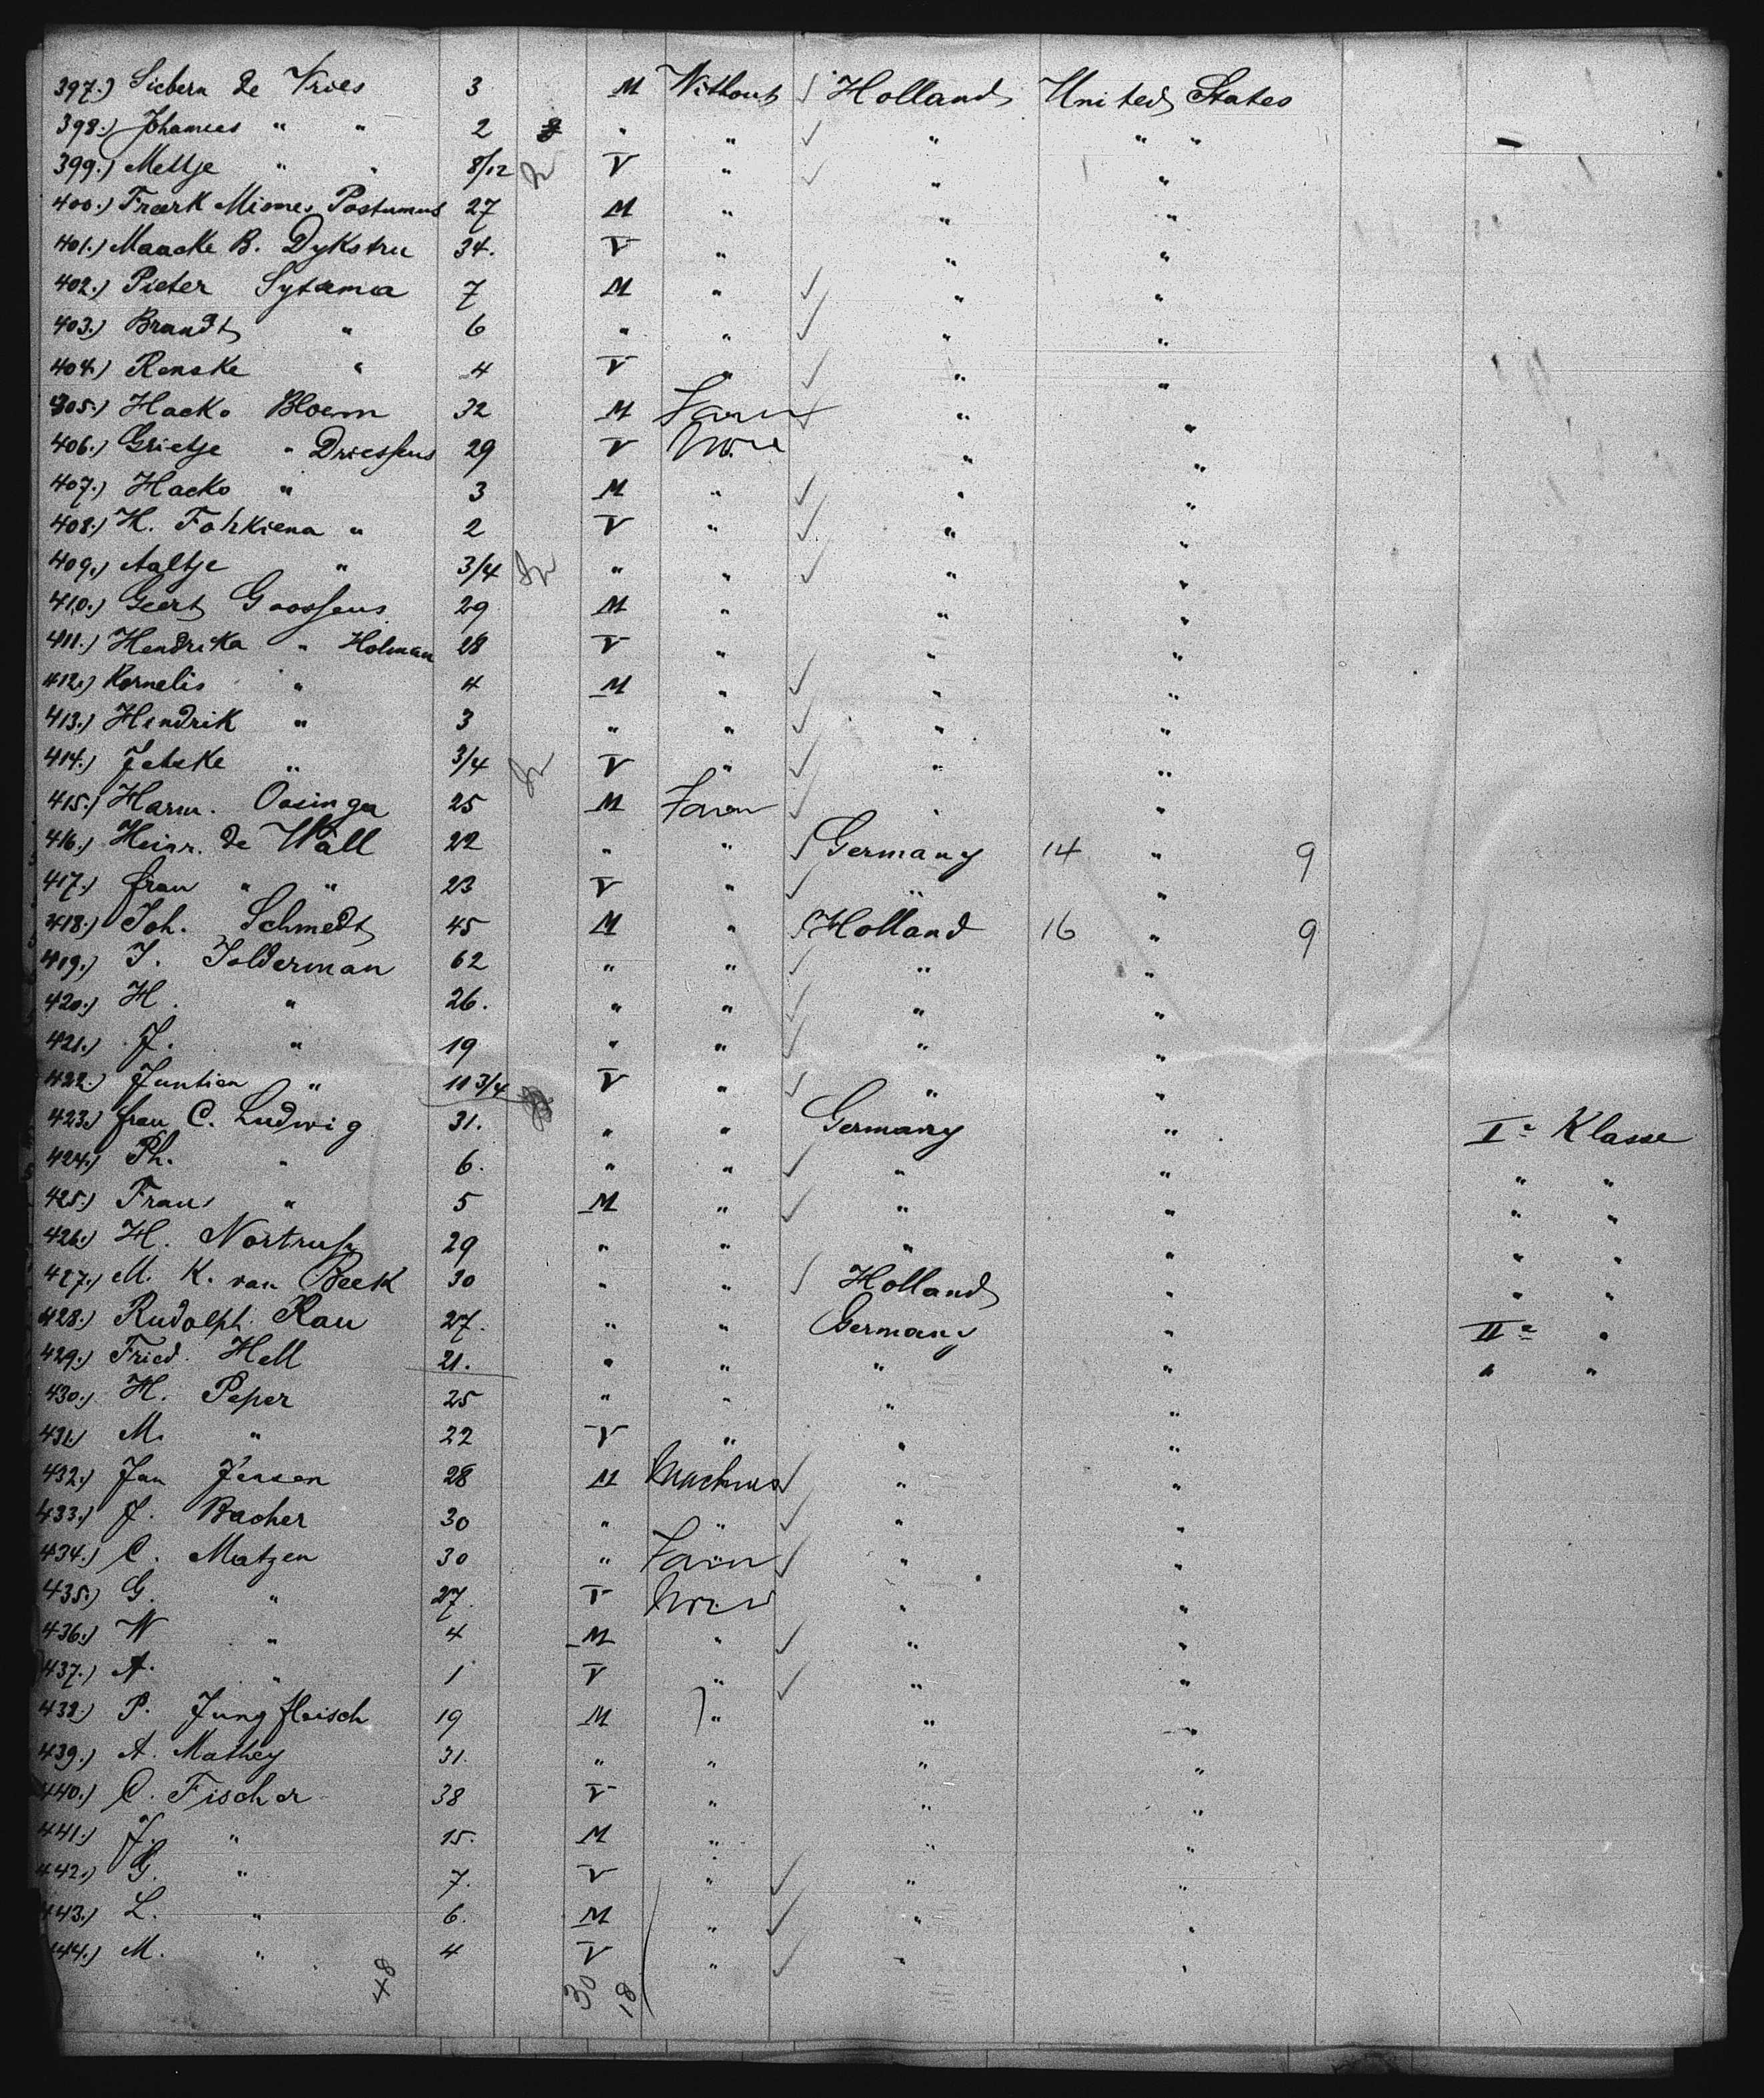 397.) Siebern de Vries 3 M Without Holland United States
398.) Johannes " " 2 " " " " "
399.) Mettje " " 8/12 V " " "
400.) Freerk Miones Postumus 27 M " " "
401.) Maacke B. Dykstru 34. V " " "
402.) Pieter Sytsma 7 M " " "
403.) Brandt " 6 " " " "
404.) Renske " 4 V " " "
405.) Hacko Bloem 32 M Farm " "
406.) Grietje " Driessens 29 V None " "
407.) Hacko " 3 M " " "
408.) H. Fohkiena " 2 V " " "
409.) Aaltje " 3/4 " " " "
410.) Geert Goossens 29 M " " "
411.) Hendrika " Holman 28 V " " "
412.) Kornelis " 4 M " " "
413.) Hendrik " 3 " " " "
414.) Jetske " 3/4 V " " "
415.) Harm. Oosinga 25 M Farm " "
416.) Heinr. de Wall 22 " " Germany 14 " 9
417.) frau " " 23 V " " "
418.) Joh. Schmedt 45 M " Holland 16 " 9
419.) J. Tolderman 62 " " " "
420.) H. " 26. " " " "
421.) J. " 19 " " " "
422.) Jantien " 10 3/4 V " " "
423.) frau C. Ludwig 31. " " Germany " I e Klasse
424.) Ph. " 6. " " " " " "
425.) Frans " 5 M " " " " "
426.) H. Nortrup 29 " " " " " "
427.) M. K. van Beek 30 " " Holland " " "
428.) Rudolph Rau 27. " " Germany " II e "
429.) Fried. Hell 21. " " " " " "
430.) H. Peper 25 " " " "
431.) M. " 22 V " " "
432.) Jan Jensen 28 M " "
433.) J. Bacher 30 " " " "
434.) C. Matzen 30 " Farm " "
435.) G. " 27. V None " "
436.) W " 4 M " " "
437.) A. " 1 V " " "
438.) P. Jungfleisch 19 M " " "
439.) A. Mathey 31. " " " "
440.) C. Fischer 38 V " " "
441.) J. " 15. M " " "
442.) G. " 7. V " " "
443.) L. " 6. M " " "
444.) M. " 4 V " " "
48 30 18